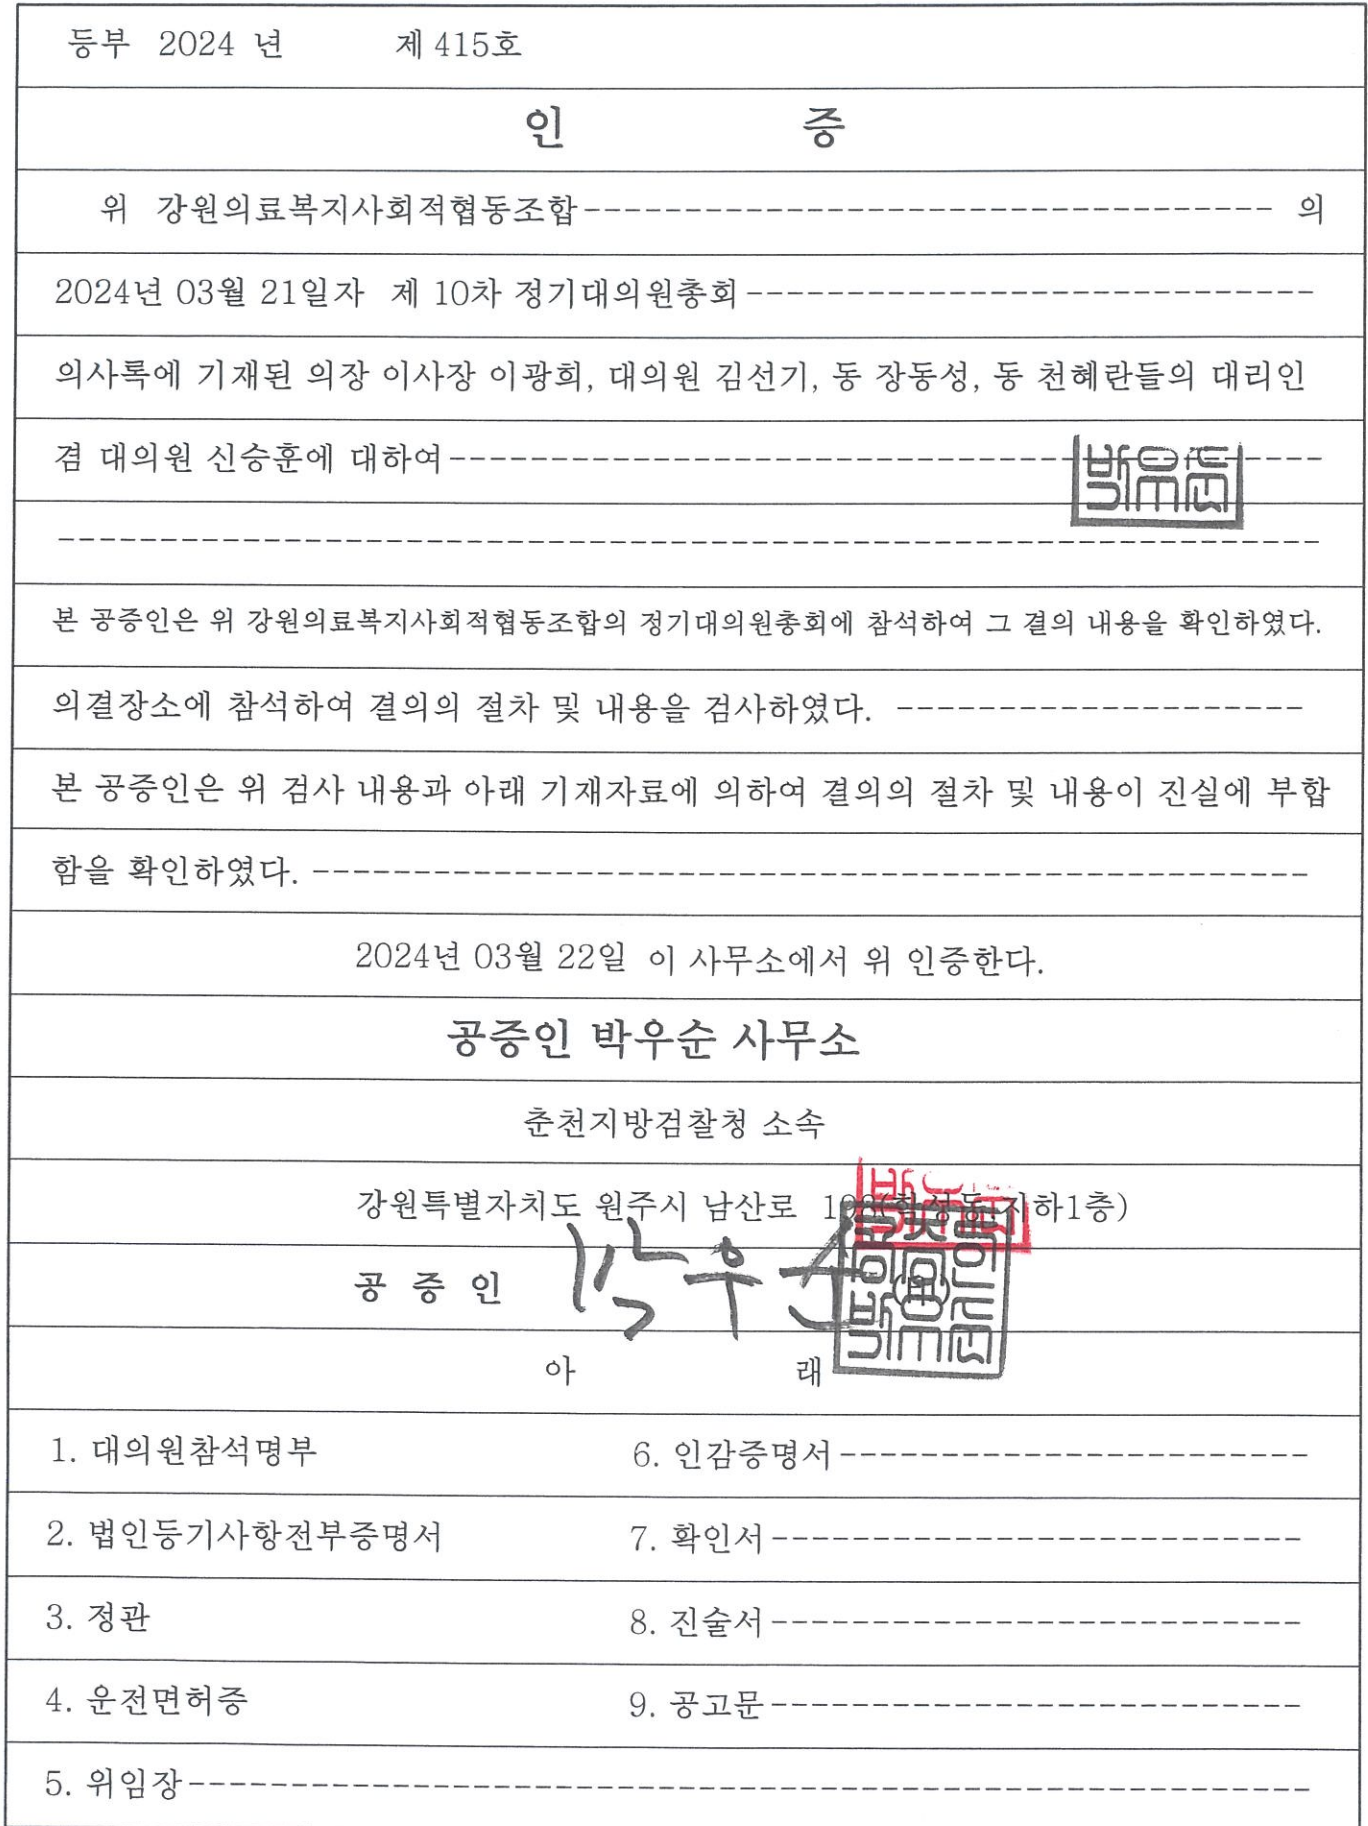 등부 2024 년 제 415호
인 증
위 강원의료복지사회적협동조합---------------------------------- 의
2024년 03월 21일자 제 10차 정기대의원총회----------------------------
의사록에 기재된 의장 이사장 이광희, 대의원 김선기, 동 장동성, 동 천혜란들의 대리인
겸 대의원 신승훈에 대하여-------------------------------------------
--------------------------------------------------------------
본 공증인은 위 강원의료복지사회적협동조합의 정기대의원총회에 참석하여 그 결의 내용을 확인하였다.
의결장소에 참석하여 결의의 절차 및 내용을 검사하였다. --------------------
본 공증인은 위 검사 내용과 아래 기재자료에 의하여 결의의 절차 및 내용이 진실에 부합
함을 확인하였다. -------------------------------------------------
2024년 03월 22일 이 사무소에서 위 인증한다.
공증인 박우순 사무소
춘천지방검찰청 소속
강원특별자치도 원주시 남산로 지하1층)
공 증 인 박우순
아 래
1. 대의원참석명부 6. 인감증명서-----------------------
2. 법인등기사항전부증명서 7. 확인서--------------------------
3. 정관 8. 진술서--------------------------
4. 운전면허증 9. 공고문--------------------------
5. 위임장--------------------------------------------------------